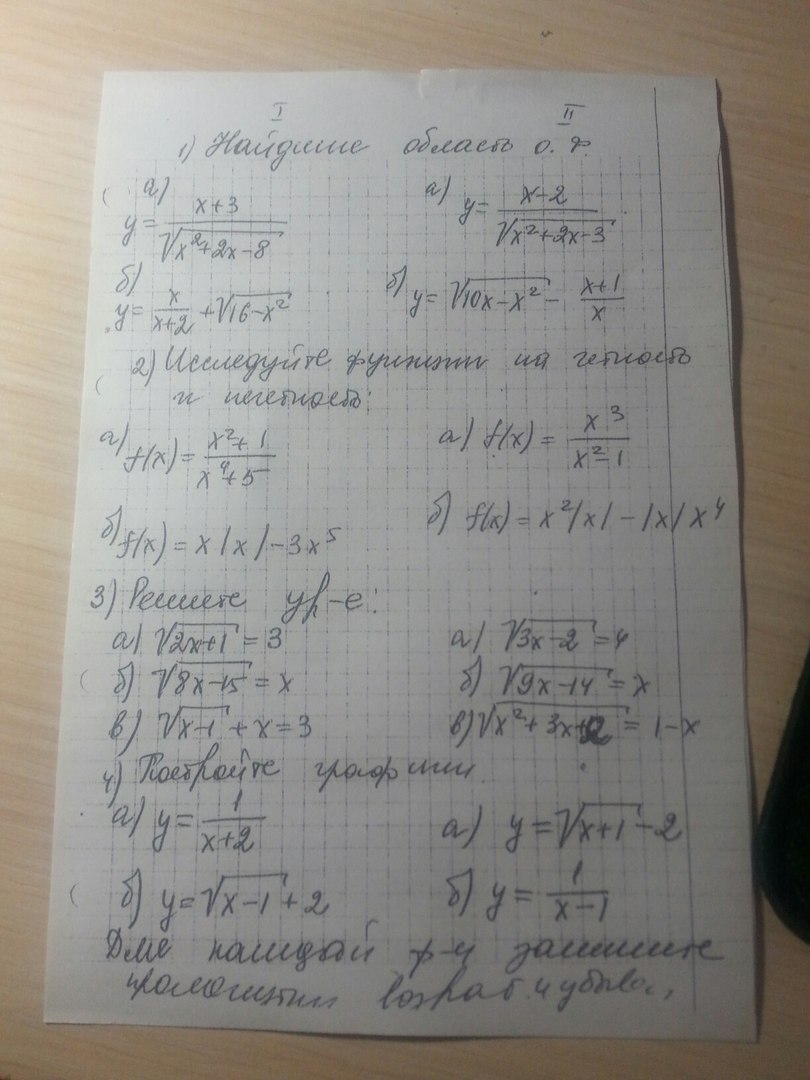 I II
1) Найдите область о. ф.
а) y = x+3 / √x²+2x-8 а) y = x-2 / √x²+2x-3
б) y = x / x+2 + √16-x² б) y = √10x-x² - x+1 / x
2) Исследуйте функции на четность
и нечетность:
а) f(x) = x²+1 / x⁴+5 а) f(x) = x³ / x²-1
б) f(x) = x|x| - 3x⁵ б) f(x) = x²|x| - |x|x⁴
3) Решите ур-е:
а) √2x+1 = 3 а) √3x-2 = 4
б) √8x-15 = x б) √9x-14 = x
в) √x-1 + x = 3 в) √x²+3x+2 = 1-x
4) Постройте графики
а) y = 1 / x+2 а) y = √x+1 - 2
б) y = √x-1 + 2 б) y = 1 / x-1
Для каждой ф-и запишите
промежутки возраст. и убыва.,